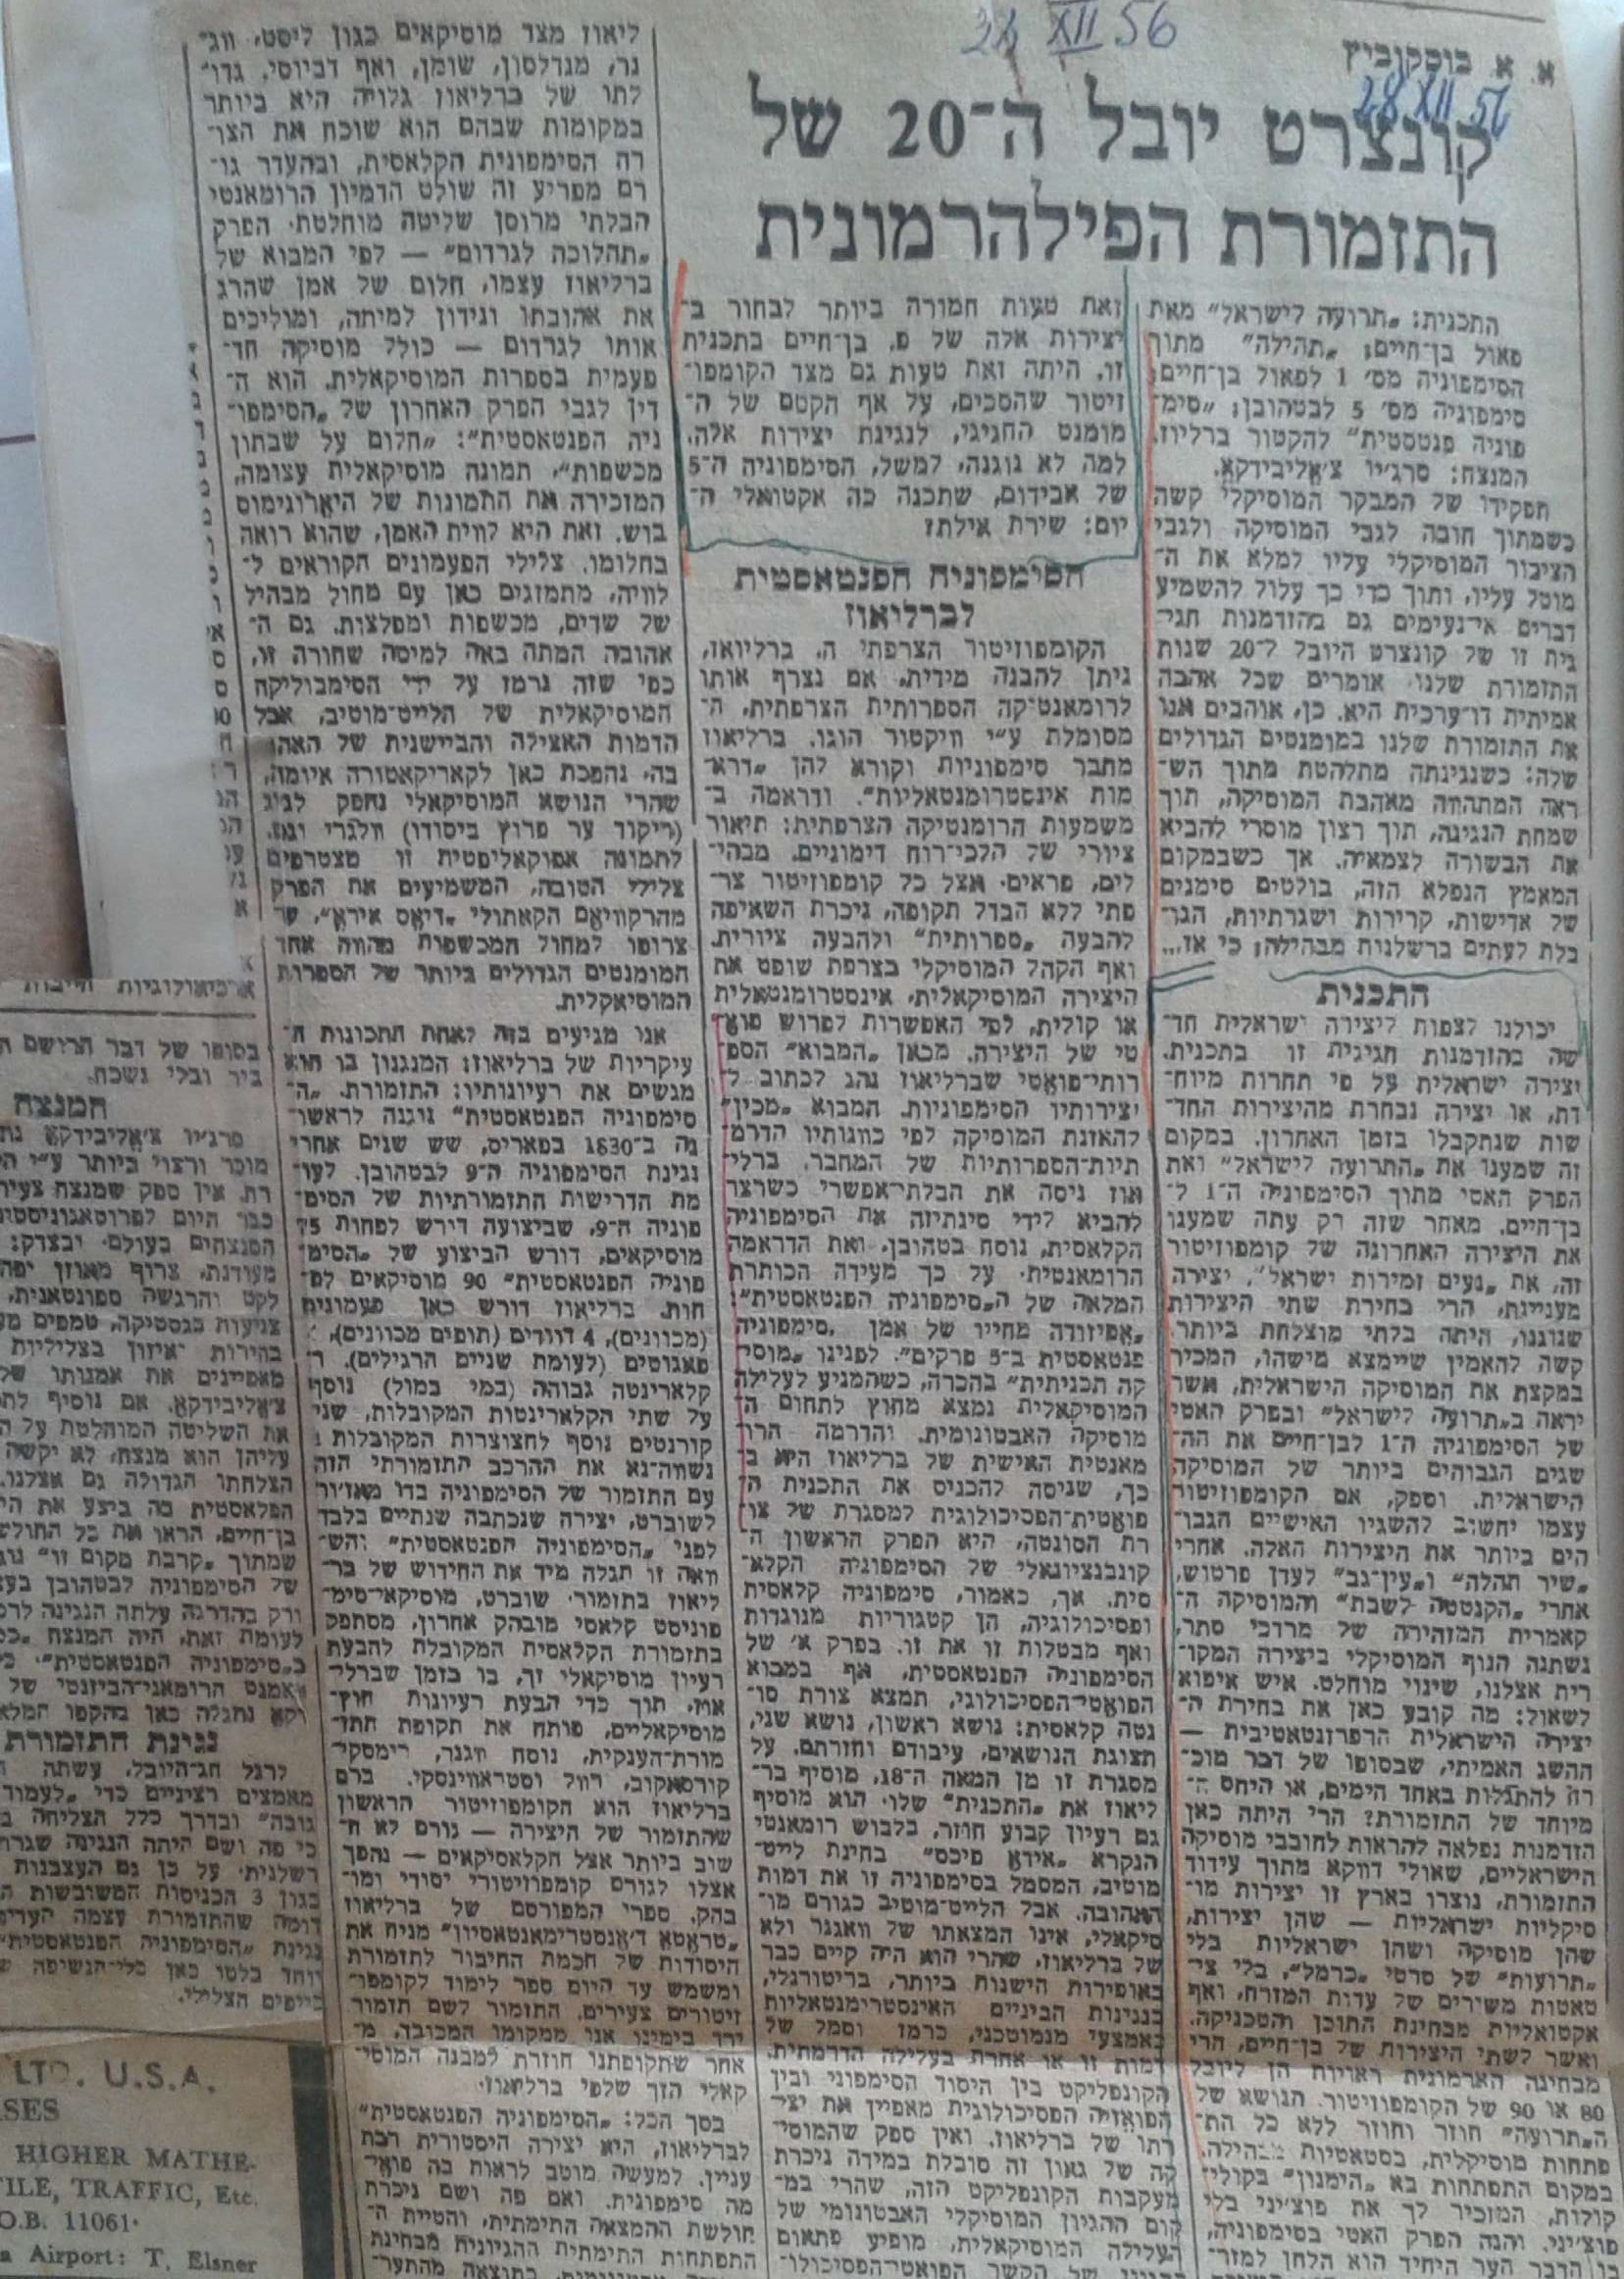 28 XII 56
א. א. בוסקוביץ
28 XII 56
קונצרט יובל ה־20 של
התזמורת הפילהרמונית
התכנית: „תרועה לישראל" מאת
פאול בן־חיים; „תהילה" מתוך
הסימפוניה מס' 1 לפאול בן־חיים;
סימפוניה מס' 5 לבטהובן; „סימ־
פוניה פנטסטית" להקטור ברליוז.
המנצח: סרג'יו צ'אליבידקא.
תפקידו של המבקר המוסיקלי קשה
כשמתוך חובה לגבי המוסיקה ולגבי
הציבור המוסיקלי עליו למלא את ה־
מוטל עליו, ותוך כדי כך עלול להשמיע
דברים אי־נעימים גם בהזדמנות חגי־
גית זו של קונצרט היובל ל־20 שנות
התזמורת שלנו. אומרים שכל אהבה
אמיתית דו־ערכית היא. כן, אוהבים אנו
את התזמורת שלנו במומנטים הגדולים
שלה: כשנגינתה מתלהטת מתוך הש־
ראה המתהווה מאהבת המוסיקה, תוך
שמחת הנגינה, תוך רצון מוסרי להביא
את הבשורה לצמאיה. אך כשבמקום
המאמץ הנפלא הזה, בולטים סימנים
של אדישות, קרירות ושגרתיות, הגו־
בלת לעתים ברשלנות מבהילה; כי אז...
התכנית
יכולנו לצפות ליצירה ישראלית חד־
שה בהזדמנות חגיגית זו בתכנית.
יצירה ישראלית על פי תחרות מיוח־
דת, או יצירה נבחרת מהיצירות החד־
שות שנתקבלו בזמן האחרון. במקום
זה שמענו את „התרועה לישראל" ואת
הפרק האטי מתוך הסימפוניה ה־1 ל־
בן־חיים. מאחר שזה רק עתה שמענו
את היצירה האחרונה של קומפוזיטור
זה, את „נעים זמירות ישראל", יצירה
מעניינת, הרי בחירת שתי היצירות
שנוגנו, היתה בלתי מוצלחת ביותר.
קשה להאמין שיימצא מישהו, המכיר
במקצת את המוסיקה הישראלית, אשר
יראה ב„תרועה לישראל" ובפרק האטי
של הסימפוניה ה־1 לבן־חיים את הה־
שגים הגבוהים ביותר של המוסיקה
הישראלית. וספק, אם הקומפוזיטור
עצמו יחשוב להשגיו האישיים הגבו־
הים ביותר את היצירות האלה. אחרי
„שיר תהלה" ו„עין־גב" לעדן פרטוש,
אחרי „הקנטטה לשבת" והמוסיקה ה־
קאמרית המזהירה של מרדכי סתר,
נשתנה הנוף המוסיקלי ביצירה המקו־
רית אצלנו, שינוי מוחלט. איש איפוא
לשאול: מה קובע כאן את בחירת ה־
יצירה הישראלית הרפרזנטאטיבית —
ההשג האמיתי, שבסופו של דבר מוכ־
רח להתגלות באחד הימים, או היחס ה־
מיוחד של התזמורת? הרי היתה כאן
הזדמנות נפלאה להראות לחובבי מוסיקה
הישראליים, שאולי דווקא מתוך עידוד
התזמורת, נוצרו בארץ זו יצירות מו־
סיקליות ישראליות — שהן יצירות,
שהן מוסיקה ושהן ישראליות בלי
„תרועות" של סרטי „כרמל", בלי צי־
טאטות משירים של עדות המזרח, ואף
אקטואליות מבחינת התוכן והטכניקה.
ואשר לשתי היצירות של בן־חיים, הרי
מבחינה הארמונית ראויות הן ליובל
80 או 90 של הקומפוזיטור. הנושא של
ה„תרועה" חוזר וחוזר ללא כל הת־
פתחות מוסיקלית, בסטאטיות מבהילה.
במקום התפתחות בא „הימנון" בקולי־
קולות, המזכיר לך את פוצ'יני בלי
פוצ'יני. והנה הפרק האטי בסימפוניה,
הדבר הער היחיד הוא הלחן למזר־
זאת טעות חמורה ביותר לבחור ב־
יצירות אלה של פ. בן־חיים בתכנית
זו. היתה זאת טעות גם מצד הקומפו־
זיטור שהסכים, על אף הקסם של ה־
מומנט החגיגי, לנגינת יצירות אלה.
למה לא נוגנה, למשל, הסימפוניה ה־5
של אבידום, שתכנה כה אקטואלי ה־
יום: שירת אילת?
הסימפוניה הפנטאסטית
לברליאוז
הקומפוזיטור הצרפתי ה. ברליואז,
ניתן להבנה מידית, אם נצרף אותו
לרומאנטיקה הספרותית הצרפתית, ה־
מסומלת ע"י ויקטור הוגו. ברליאוז
מחבר סימפוניות וקורא להן „דרא־
מות אינסטרומנטאליות". ודראמה ב־
משמעות הרומנטיקה הצרפתית: תיאור
ציורי של הלכי־רוח דימוניים, מבהי־
לים, פראים. אצל כל קומפוזיטור צר־
פתי ללא הבדל תקופה, ניכרת השאיפה
להבעה „ספרותית" ולהבעה ציורית.
ואף הקהל המוסיקלי בצרפת שופט את
היצירה המוסיקאלית, אינסטרומנטאלית
או קולית, לפי האפשרות לפרוש פוא־
טי של היצירה. מכאן „המבוא" הספ־
רותי־פואטי שברליאוז נהג לכתוב ל־
יצירותיו הסימפוניות. המבוא „מכין"
להאזנת המוסיקה לפי כוונותיו הדרמ־
תיות־הספרותיות של המחבר. ברלי־
אוז ניסה את הבלתי־אפשרי כשרצה
להביא לידי סינתיזה את הסימפוניה
הקלאסית, נוסח בטהובן, ואת הדראמה
הרומאנטית. על כך מעידה הכותרת
המלאה של ה„סימפוניה הפנטאסטית":
„אפיזודה מחייו של אמן, סימפוניה
פנטאסטית ב־5 פרקים". לפנינו „מוסי־
קה תכניתית" בהכרה, כשהמניע לעלילה
המוסיקאלית נמצא מחוץ לתחום ה־
מוסיקה האבטונומית. והדרמה הרו־
מאנטית האישית של ברליאוז היא ב־
כך, שניסה להכניס את התכנית ה־
פואטית־הפסיכולוגית למסגרת של צו־
רת הסונטה, היא הפרק הראשון ה־
קונבנציונאלי של הסימפוניה הקלא־
סית. אך, כאמור, סימפוניה קלאסית
ופסיכולוגיה, הן קטגוריות מנוגדות
ואף מבטלות זו את זו. בפרק א' של
הסימפוניה הפנטאסטית, אף במבוא
הפואטי־הפסיכולוגי, תמצא צורת סו־
נטה קלאסית: נושא ראשון, נושא שני,
תצוגת הנושאים, עיבודם וחזרתם. על
מסגרת זו מן המאה ה־18, מוסיף בר־
ליאוז את „התכנית" שלו. הוא מוסיף
גם רעיון קבוע חוזר, בלבוש רומאנטי
הנקרא „אידא פיכס" בחינת לייט־
מוטיב, המסמל בסימפוניה זו את דמות
האהובה. אבל הלייט־מוטיב כגורם מו־
סיקאלי, אינו המצאתו של וואגנר ולא
של ברליאוז, שהרי הוא היה קיים כבר
באופירות הישנות ביותר, בריטורנלי,
בנגינות הביניים האינסטרימנטאליות
כאמצעי מנמוטכני, כרמז וסמל של
דמות זו או אחרת בעלילה הדרמתית.
הקונפליקט בין היסוד הסימפוני ובין
הפואזיה הפסיכולוגית מאפיין את יצי־
רתו של ברליאוז. ואין ספק שהמוסי־
קה של גאון זה סובלת במידה ניכרת
מעקבות הקונפליקט הזה, שהרי במ־
קום ההגיון המוסיקלי האבטונומי של
העלילה המוסיקאלית, מופיע פתאום
של הקשר הפואטי־הפסיכולו־
ליאוז מצד מוסיקאים כגון ליסט, ווג־
נר, מנדלסון, שומן, ואף דביוסי. גדו־
לתו של ברליאוז גלויה היא ביותר
במקומות שבהם הוא שוכח את הצו־
רה הסימפונית הקלאסית, ובהעדר גו־
רם מפריע זה שולט הדמיון הרומאנטי
הבלתי מרוסן שליטה מוחלטת. הפרק
„תהלוכה לגרדום" — לפי המבוא של
ברליאוז עצמו, חלום של אמן שהרג
את אהובתו ונידון למיתה, ומוליכים
אותו לגרדום — כולל מוסיקה חד־
פעמית בספרות המוסיקאלית. הוא ה־
דין לגבי הפרק האחרון של „הסימפו־
ניה הפנטאסטית": „חלום על שבתון
מכשפות", תמונה מוסיקאלית עצומה,
המזכירה את התמונות של היארונימוס
בוש. זאת היא לווית האמן, שהוא רואה
בחלומו. צלילי הפעמונים הקוראים ל־
לוויה, מתמזגים כאן עם מחול מבהיל
של שדים, מכשפות ומפלצות. גם ה־
אהובה המתה באה למיסה שחורה זו,
כפי שזה נרמז על ידי הסימבוליקה
המוסיקאלית של הלייט־מוטיב, אבל
הדמות האצילה והביישנית של האהו־
בה, נהפכת כאן לקאריקאטורה איומה,
שהרי הנושא המוסיקאלי נהפך לג'יג
(ריקוד ער פרוץ ביסודו) וולגרי וגס.
לתמונה אפוקאליפטית זו מצטרפים
צלילי הטובה, המשמיעים את הפרק
מהרקוויאם הקאתולי „דיאס אירא", ש־
צרופו למחול המכשפות מהווה אחד
המומנטים הגדולים ביותר של הספרות
המוסיאקלית.
אנו מגיעים בזה לאחת התכונות ה־
עיקריות של ברליאוז: המנגנון בו הוא
מגשים את רעיונותיו: התזמורת. „ה־
סימפוניה הפנטאסטית" נוגנה לראשו־
נה ב־1830 בפאריס, שש שנים אחרי
נגינת הסימפוניה ה־9 לבטהובן. לעו־
מת הדרישות התזמורתיות של הסימ־
פוניה ה־9, שביצועה דורש לפחות 75
מוסיקאים, דורש הביצוע של „הסימ־
פוניה הפנטאסטית" 90 מוסיקאים לפ־
חות. ברליאוז דורש כאן פעמונים
(מכוונים), 4 דוודים (תופים מכוונים),
פאגוטים (לעומת שניים הרגילים).
קלארינטה גבוהה (במי במול) נוסף
על שתי הקלארינטות המקובלות, שני
קורנטים נוסף לחצוצרות המקובלות
נשווה־נא את ההרכב התזמורתי הזה
עם התזמור של הסימפוניה בדו מאז'ור
לשוברט, יצירה שנכתבה שנתיים בלבד
לפני „הסימפוניה הפנטאסטית" והש־
וואה זו תגלה מיד את החידוש של בר־
ליאוז בתזמור. שוברט, מוסיקאי־סימ־
פוניסט קלאסי מובהק אחרון, מסתפק
בתזמורת הקלאסית המקובלת להבעת
רעיון מוסיקאלי זך, בו בזמן שברלי־
אוז, תוך כדי הבעת רעיונות חוץ־
מוסיקאליים, פותח את תקופת התז־
מורת־הענקית, נוסח וגנר, רימסקי־
קורסאקוב, רוול וסטראווינסקי. ברם
ברליאוז הוא הקומפוזיטור הראשון
שהתזמור של היצירה — גורם לא ח־
שוב ביותר אצל הקלאסיקאים — נהפך
אצלו לגורם קומפוזיטורי יסודי ומו־
בהק. ספרו המפורסם של ברליאוז
„טראטא ד'אנסטרימאנטאסיון" מניח את
היסודות של חכמת החיבור לתזמורת
ומשמש עד היום ספר לימוד לקומפו־
זיטורים צעירים. התזמור לשם תזמור
ירד בימינו אנו ממקומו המכובד, מ־
אחר שתקופתנו חוזרת למבנה המוסי־
קאלי הזך שלפי ברליאוז.
בסך הכל: „הסימפוניה הפנטאסטית"
לברליאוז, היא יצירה היסטורית רבת
עניין. למעשה מוטב לראות בה פואי־
מה סימפונית. ואם פה ושם ניכרת
חולשת ההמצאה התימתית, והטיית ה־
התפתחות התימתית ההגיונית מבחינת
בתוצאה מהתער־
ארכיאולוגיות חייבות
בסופו של דבר הרושם ה
ביר ובלי נשכח.
המנצח
סרג'יו צ'אליבידקא
מוכר ורצוי ביותר ע"י
רת. אין ספק שמנצח צעיר
כבר היום לפרוטאגוניסטי
המנצחים בעולם. ובצדק:
מעודנת, צרוף מאוזן יפה
לקט והרגשה ספונטאנית,
צניעות בגסטיקה, טמפים
בהירות ואיזון בצליליות
מאפיינים את אמנותו של
צ'אליבידקא. אם נוסיף
את השליטה המוחלטת על
עליהן הוא מנצח, לא יקשה
הצלחתו הגדולה גם אצלנו.
הפלאסטית בה ביצע את
בן־חיים, הראו את כל
שמתוך „קרבת מקום זו"
של הסימפוניה לבטהובן
ורק בהדרגה עלתה הנגינה
לעומת זאת, היה המנצח
ב„סימפוניה הפנטאסטית".
נתגלה כאן בהקפו המלא
נגינת התזמורת
לרגל חג־היובל, עשתה
מאמצים רציניים כדי „לעמוד
גובה" ובדרך כלל הצליחה
כי פה ושם היתה הנגינה
רשלנית. על כן גם העצבנות
כגון 3 הכניסות המשובשות
דומה שהתזמורת עצמה
נגינת „הסימפוניה הפנטאסטית"
ויחד בלטו כאן כלי־הנשיפה
הצלילי.
LTD. U.S.A.
SES
HIGHER MATHE-
ILE, TRAFFIC, Etc.
O.B. 11061.
Airport: T. Elsner